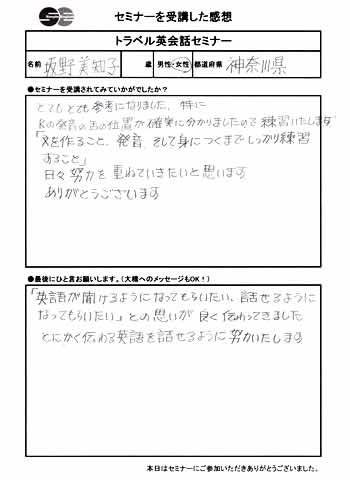 セミナーを受講した感想
トラベル英会話セミナー
名前 坂野美知子 歳 男性・女性 都道府県 神奈川県
●セミナーを受講されてみていかがでしたか?
とてもとても参考になりました、特に
Rの発音の舌の位置が確実に分かりましたので練習いたします
「文を作ること、発音、そして身につくまでしっかり練習
すること」
日々努力を重ねていきたいと思います
ありがとうございます
●最後にひと言お願いします。(大橋へのメッセージもOK!)
「英語が聞けるようになってもらいたい、話せるように
なってもらいたい」との思いが良く伝わってきました
とにかく伝わる英語を話せるように努力いたします
本日はセミナーにご参加いただきありがとうございました。